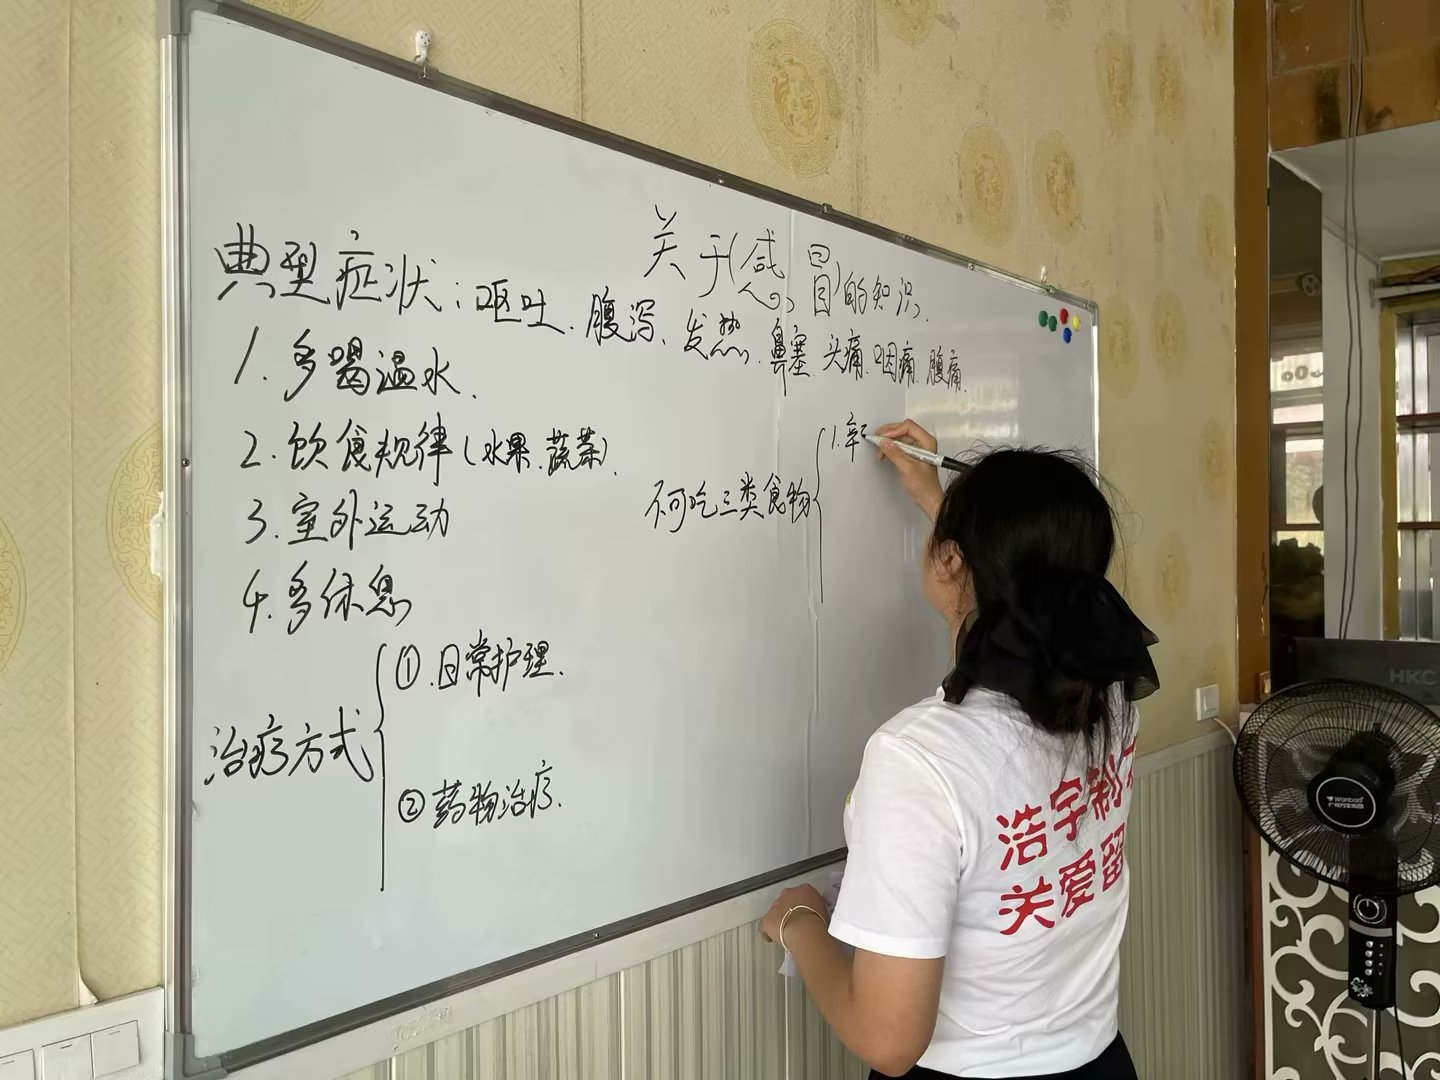 关于(感冒)的知识.
典型症状:呕吐、腹泻、发热、鼻塞.头痛.咽痛.腹痛.
1.多喝温水.
2.饮食规律(水果.蔬菜).
3.室外运动
4.多休息
治疗方式
①.日常护理.
②药物治疗.
不可吃三类食物
1.辛
浩宇制
关爱留
HKC
Wanbao